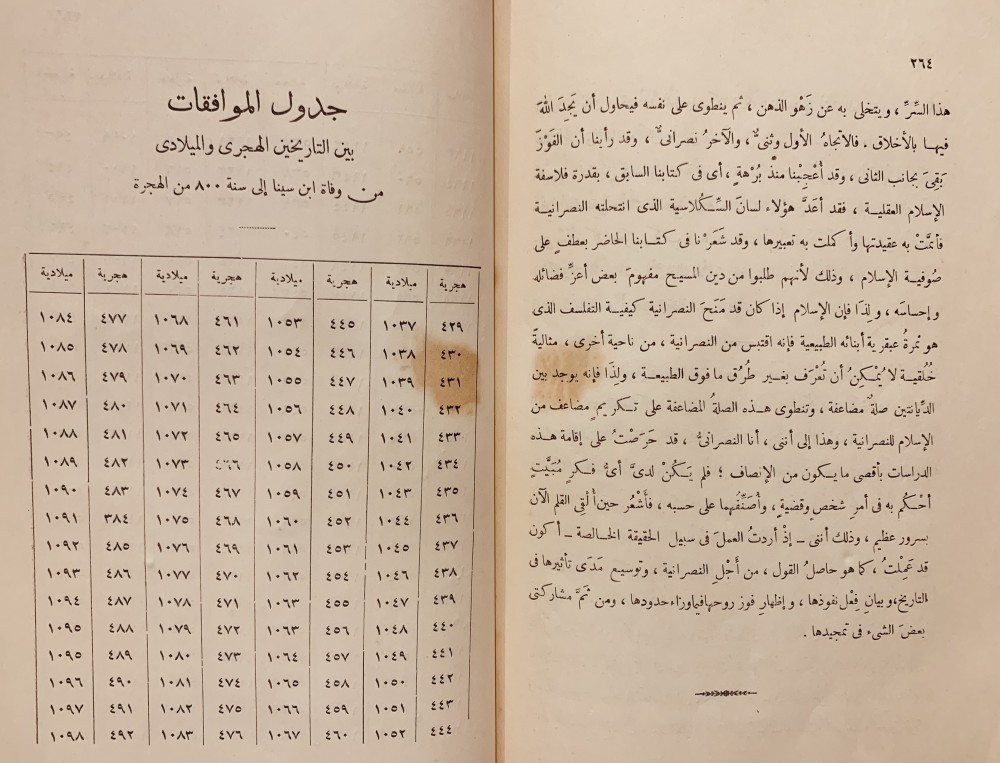 ٢٦٤
هذا السِّرِّ ، ويتخلى به عن زَهْو الذهن ، ثم ينطوى على نفسه فيحاول أن يَجِدَ اللهَ
فيهـا بالأخلاق . فالاتجاهُ الأول وثنىٌّ ، والآخرُ نصرانىٌّ ، وقد رأينا أن الفَوْزَ
بَقِىَ بجانب الثانى ، وقد أُعْجِبْنا منذُ بُرْهةٍ ، أى فى كتابنا السابق ، بقدرة فلاسفة
الإسلام العقلية ، فقد أعَدَّ هؤلاء لسانَ السِّكُلاسية الذى انتحلته النصرانيـة
فأتمَّتْ به عقيدتها وأكملت به تعبيرها ، وقد شَعَرْنا فى كتـابنا الحاضر بعطفٍ على
صُوفيـة الإسلام ، وذلك لأنهم طلبوا من دين المسيح مفهومَ بعض أعزِّ فضائله
وإحساسَه ، ولذا فإن الإسلام إذا كان قد مَنَحَ النصرانية كيفيـة التفلسف الذى
هو ثمرةُ عبقرية أبنائه الطبيعية فإنه اقتبس من النصرانية ، من ناحية أخرى ، مثاليةً
خُلُقيـة لا يُمْكِنُ أن تُعْرَف بغـير طُرُق ما فوق الطبيعـة ، ولذا فإنه يوجد بين
الدِّيانتين صلةٌ مضاعفة ، وتنطوى هـذه الصلةُ المضاعفة على تكريمٍ مضاعف من
الإسلام للنصرانية ، وهذا إلى أننى ، أنا النصرانىُّ ، قد حَرَصْتُ على إقامة هـذه
الدراسات بأقصى ما يكون من الإنصاف ؛ فلم يَكُنْ لدىَّ أىُّ فكرٍ مُبَيَّتٍ
أحْكُم به فى أمر شخصٍ وقضيةٍ ، وأصَنِّفُهما على حسبه ، فأشْعُر حين أُلْقِى القلم الآن
بسرور عظيم ، وذلك أننى ــ إذْ أردتُ العملَ فى سبيل الحقيقة الخالصة ــ أكون
قد عَمِلْتُ ، كما هو حاصلُ القول ، من أجْلِ النصرانية ، وتوسيع مَدَى تأثيرها فى
التاريخ، وبيانِ فِعْل نفوذها ، وإظهارِ فوز روحها فيما وراء حدودها ، ومن ثَمَّ مشاركتى
بعضَ الشىء فى تمجيدها .
جدول الموافقات
بين التاريخين الهجرى والميلادى
من وفاة ابن سينا إلى سنة ٨٠٠ من الهجرة
هجرية ميلادية هجرية ميلادية هجرية ميلادية هجرية ميلادية
٤٢٩ ١٠٣٧ ٤٤٥ ١٠٥٣ ٤٦١ ١٠٦٨ ٤٧٧ ١٠٨٤
٤٣٠ ١٠٣٨ ٤٤٦ ١٠٥٤ ٤٦٢ ١٠٦٩ ٤٧٨ ١٠٨٥
٤٣١ ١٠٣٩ ٤٤٧ ١٠٥٥ ٤٦٣ ١٠٧٠ ٤٧٩ ١٠٨٦
٤٣٢ ١٠٤٠ ٤٤٨ ١٠٥٦ ٤٦٤ ١٠٧١ ٤٨٠ ١٠٨٧
٤٣٣ ١٠٤١ ٤٤٩ ١٠٥٧ ٤٦٥ ١٠٧٢ ٤٨١ ١٠٨٨
٤٣٤ ١٠٤٢ ٤٥٠ ١٠٥٨ ٤٦٦ ١٠٧٣ ٤٨٢ ١٠٨٩
٤٣٥ ١٠٤٣ ٤٥١ ١٠٥٩ ٤٦٧ ١٠٧٤ ٤٨٣ ١٠٩٠
٤٣٦ ١٠٤٤ ٤٥٢ ١٠٦٠ ٤٦٨ ١٠٧٥ ٣٨٤ ١٠٩١
٤٣٧ ١٠٤٥ ٤٥٣ ١٠٦١ ٤٦٩ ١٠٧٦ ٤٨٥ ١٠٩٢
٤٣٨ ١٠٤٦ ٤٥٤ ١٠٦٢ ٤٧٠ ١٠٧٧ ٤٨٦ ١٠٩٣
٤٣٩ ١٠٤٧ ٤٥٥ ١٠٦٣ ٤٧١ ١٠٧٨ ٤٨٧ ١٠٩٤
٤٤٠ ١٠٤٨ ٤٥٦ ١٠٦٣ ٤٧٢ ١٠٧٩ ٤٨٨ ١٠٩٥
٤٤١ ١٠٤٩ ٤٥٧ ١٠٦٤ ٤٧٣ ١٠٨٠ ٤٨٩ ١٠٩٥
٤٤٢ ١٠٥٠ ٤٥٨ ١٠٦٥ ٤٧٤ ١٠٨١ ٤٩٠ ١٠٩٦
٤٤٣ ١٠٥١ ٤٥٩ ١٠٦٦ ٤٧٥ ١٠٨٢ ٤٩١ ١٠٩٧
٤٤٤ ١٠٥٢ ٤٦٠ ١٠٦٧ ٤٧٦ ١٠٨٣ ٤٩٢ ١٠٩٨